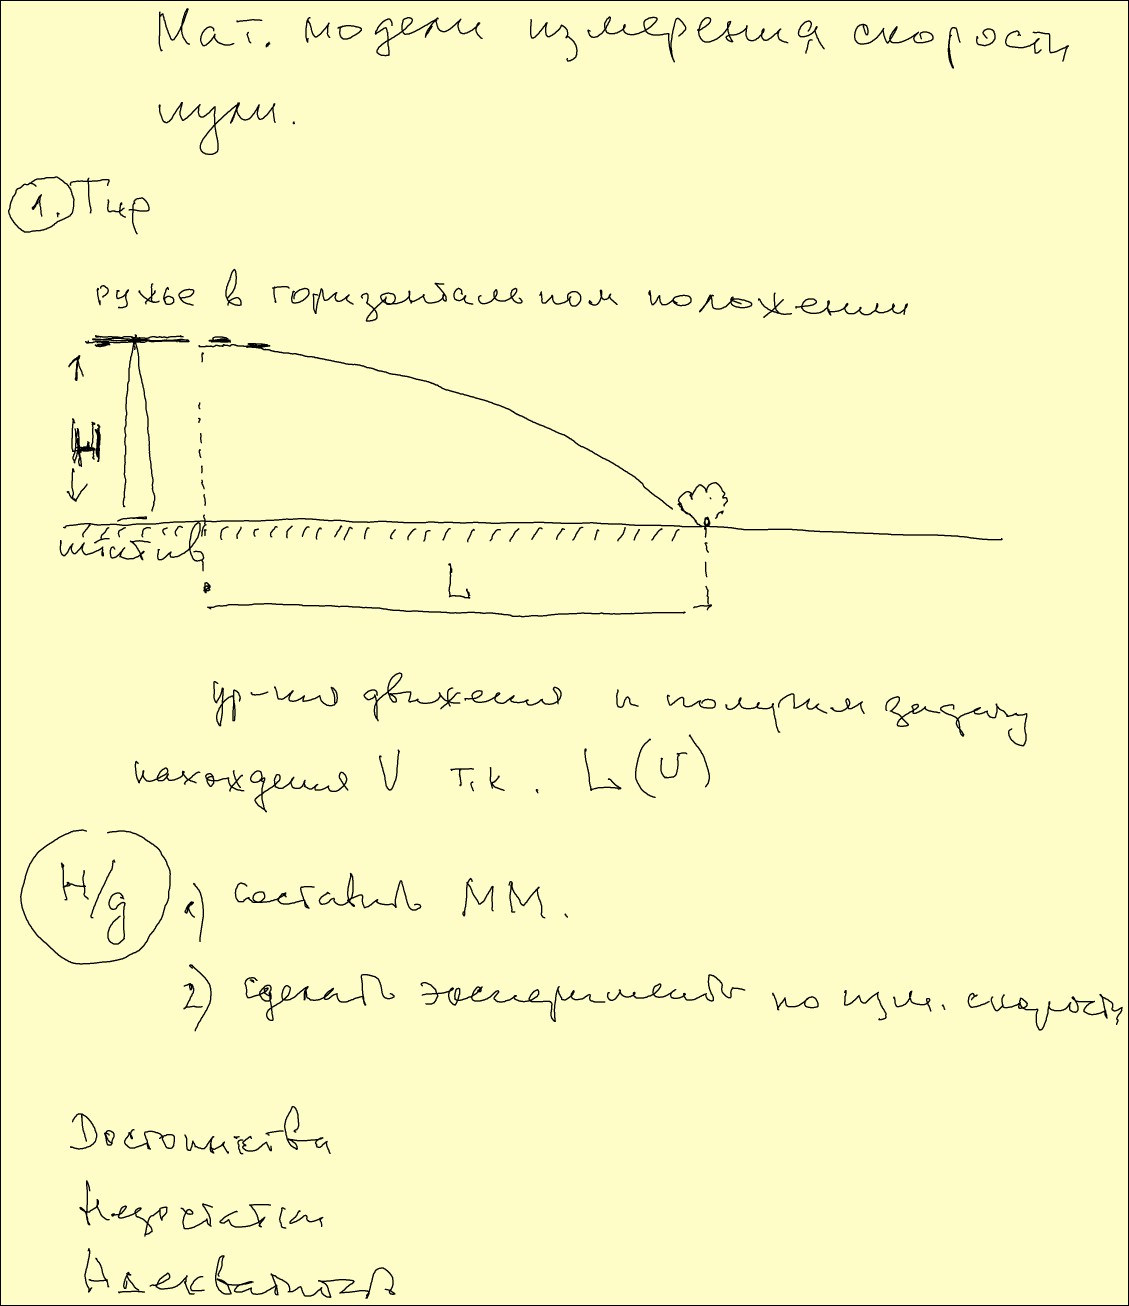 Мат. модели измерения скорости
пули.
1. Тир
ружье в горизонтальном положении
H
штатив
L
ур-ния движения и получим задачу
нахождения V т.к. L(v)
Н/д 1) составить ММ.
2) сделать эксперимент по изм. скорости
Достоинства
Недостатки
Адекватность